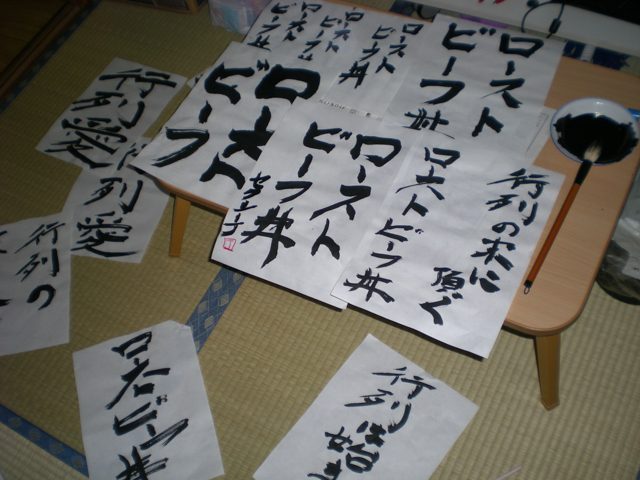 ロースト
ビーフ丼
ロースト
ビーフ丼
ロースト
ビーフ丼
ロースト
ビーフ
ロースト
ビーフ丼
行列の末に
頂く
ロースト
ビーフ丼
行列
愛
行列
愛
行列の
ロースト
ビーフ丼
行列は
始ま